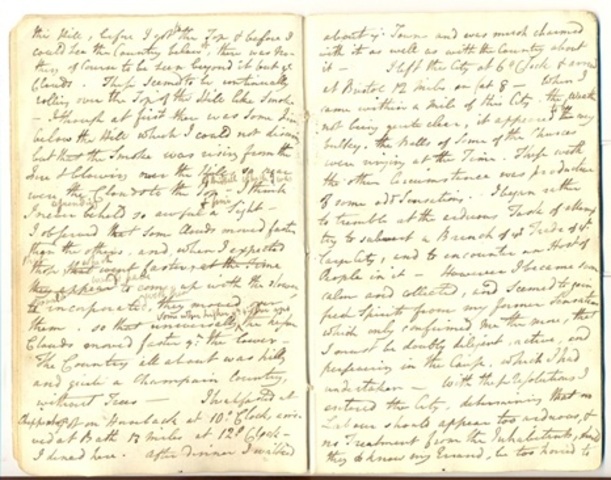 the Hill, before I got to the Top & before I
could see the Country below, there was no
thing of Course to be seen beyond it but ye
Clouds. These seemed to be continually
rolling over the Top of the Hill like Smoke
— I thought at first there was some Fire
below the Hill which I could not discern
but that the Smoke was rising from the
Fire & blowing over the
were the Clouds to the Top — I think
I never beheld so awful a Sight —
I observed that some Clouds moved faster
than the others, and when I expected
those that went faster, at the Time
they appear to come up with the slower
incorporate, they moved over
them. so that universally the higher
Clouds moved faster yn. the lower —
The Country all about was hilly
and quite a Champain Country,
without Trees — I
on Horseback at 10 o'Clock, arri-
ved at Bath 13 miles at 12 o'Clock —
I dined here. After dinner I walked
about ye Town and was much charmed
with it as well as with the Country about
it — I left the City at 6 o'Clock & arrived
at Bristol 12 miles on at 8 — When I
came within a Mile of this City, the Weather
not being quite clear, it appeared very
bulky. the Bells of some of the Churches
were ringing at the Time. These with
the other Circumstance was productive
of some odd Sensations. I began rather
to tremble at the arduous Task of attemp
ting to subvert a Branch of ye Trade of ye
large City, and to encounter an Host of
People in it — However I became soon
calm and collected, and seemed to gain
fresh Spirits from my former Sensation
which only confirmed me the more, that
I must be doubly diligent, active, and
persevering in the Cause, which I had
undertaken — With these Resolutions I
entered the City, determining that no
Labour should appear too arduous, &
no Treatment from the Inhabitants, should
they to know my Errand, be too horrid to